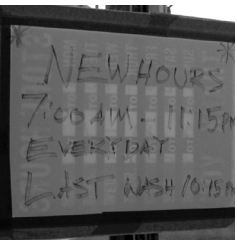 NEW HOURS
7:00 AM - 11:15 PM
EVERYDAY
LAST WASH 10:15 PM